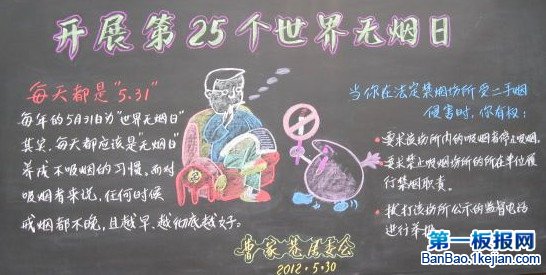 开展第25个世界无烟日
每天都是"5.31"
每年的5月31日为"世界无烟日"
其实,每天都应该是"无烟日"
养成不吸烟的习惯,而对
吸烟者来说,任何时候
戒烟都不晚,且越早、越彻底越好。
当你在法定禁烟场所受二手烟
侵害时,你有权:
·要求该场所内的吸烟者停止吸烟。
·要求禁止吸烟场所的所在单位履
行禁烟职责。
·拨打该场所公示的监督电话
进行举报
曹家巷居委会
2012.5.30
第一板报网
BanBao.1kejian.com